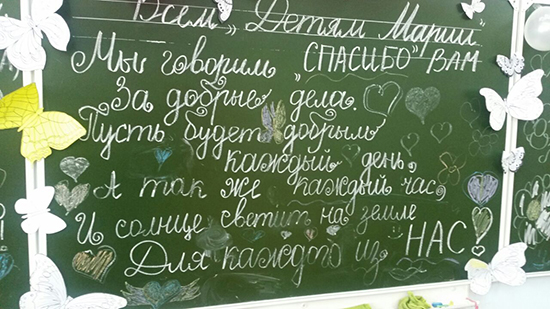 Всем „Детям Марии"
Мы говорим „СПАСИБО" ВАМ
За добрые дела.
Пусть будет добрым
каждый день,
А так же каждый час,
И солнце светит на земле
Для каждого из „НАС!